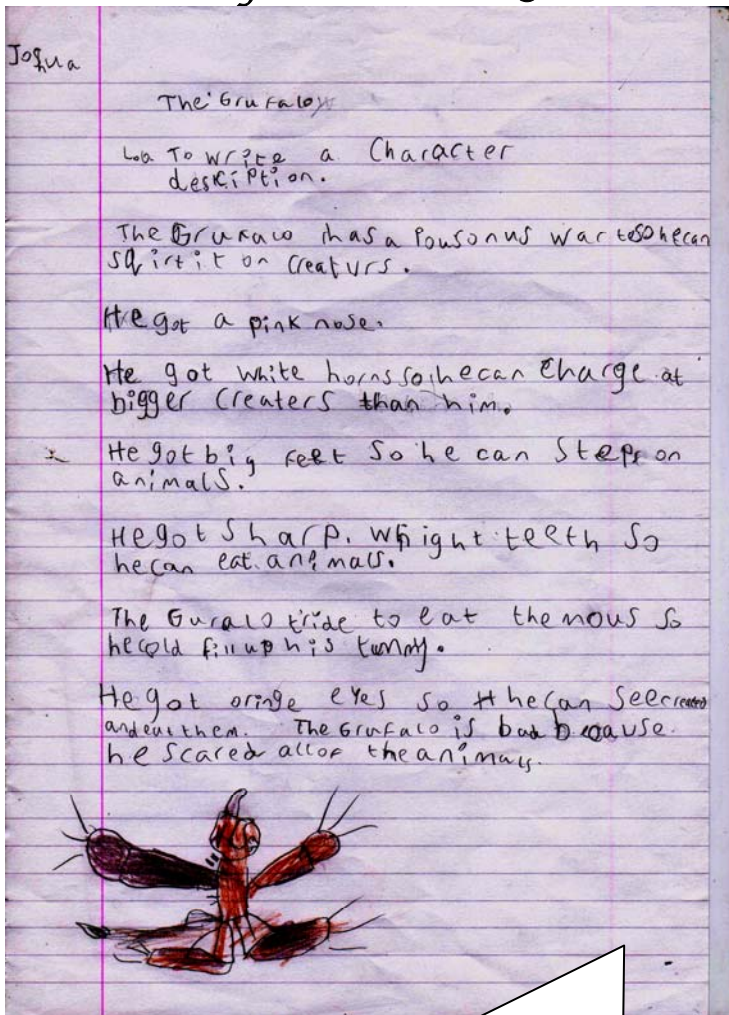 Joshua
The Grufalo
Loa To write a Character
description.
The Grufalo has a Pousonus wartesohecan
sqirtit on creaturs.
He got a pink nose.
He got white horns so hecan charge at
bigger Creaters than him.
He got big feet So he can Steps on
animals.
He got Sharp. Whight teeth So
hecan eat animals.
The Guralo tride to eat the mous So
hecold fill up his tummy.
He got oringe eyes so hecan See
and eat them. The Grufalo is bad because
he scared all of the animals.